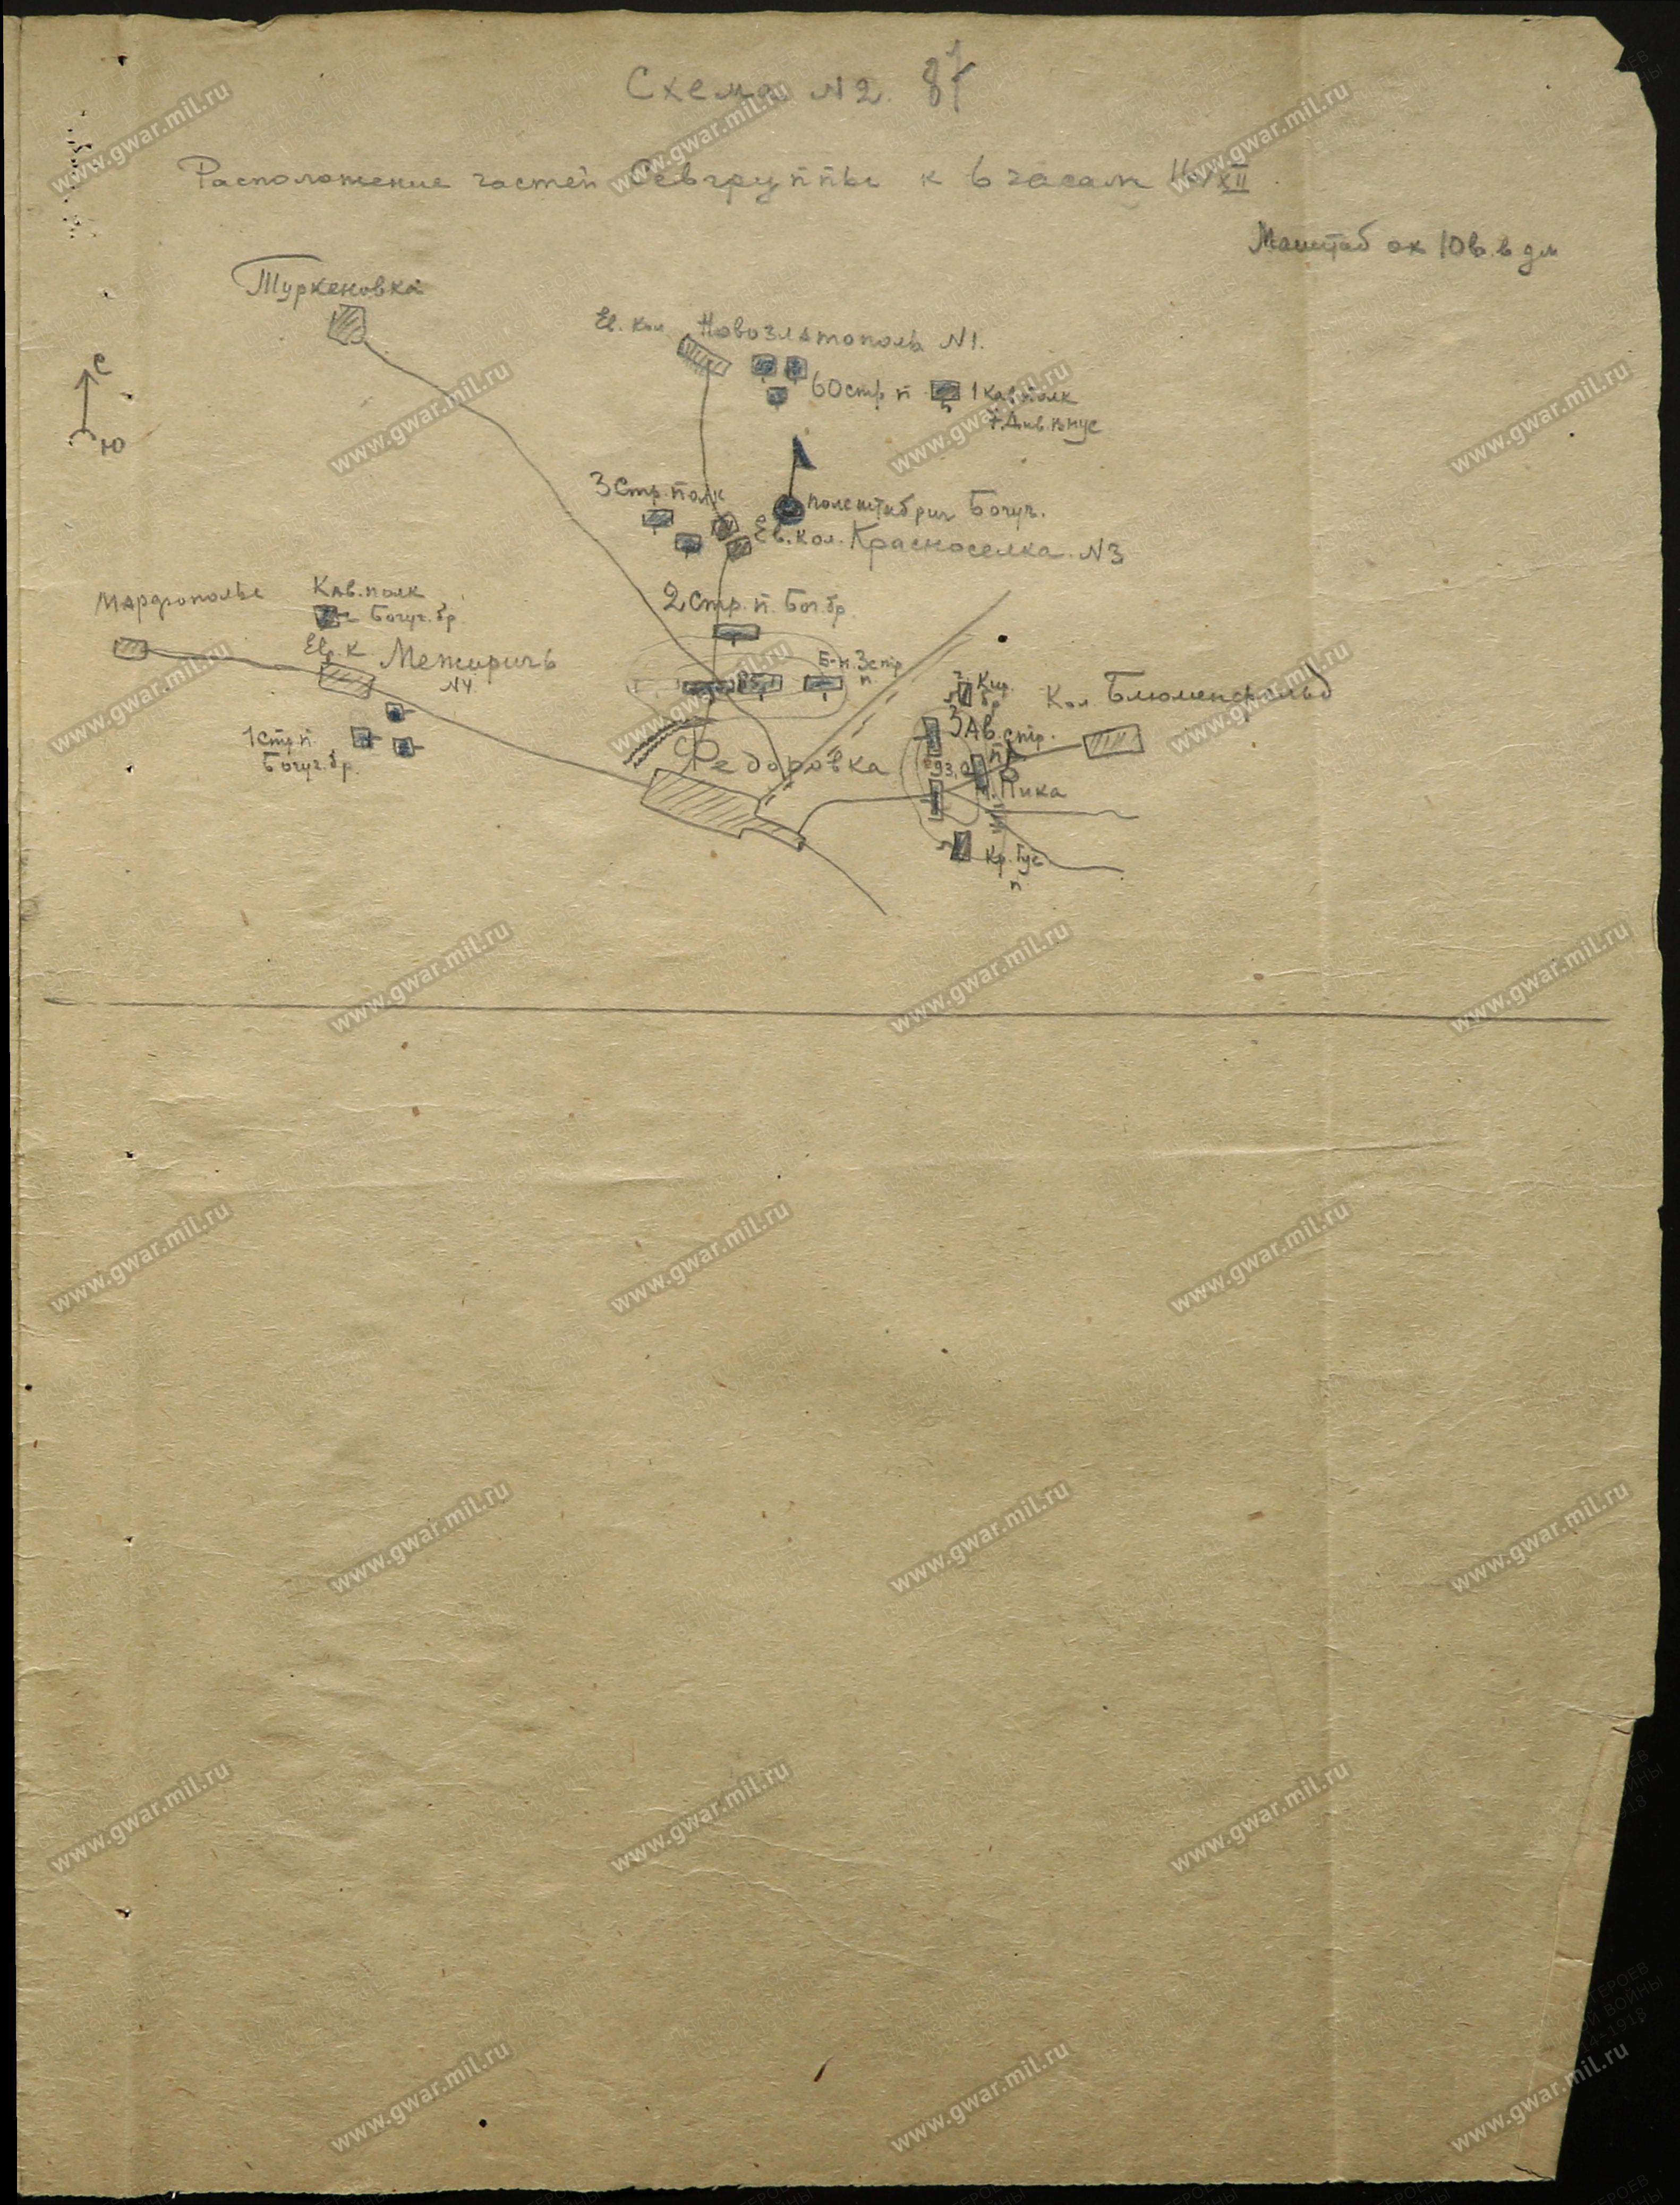 Схема N 2. 87
Расположение частей Севгруппы к 6 часам 16/XII.
Масштаб ок 10 в. в дм
Туркеновка
Ев. кол. Новозлатополь N1.
60 стр п
1 кав полк
7. Див.
С
Ю
3 стр. полк
полештабриг Богуч.
Ев. кол. Красноселка. N3
2 стр. п. Бог. бр.
Марфополье
Кав. полк
Богуч. бр.
Ев. к. Межиричь
N4
Б-н. 3 стр
п
1 стр. п.
Богуч. бр.
Федоровка
Кир.
бр
Кол Блюменфельд
3 Ав. стр.
п
93,0
М. Пика
Кр. Гус
п
www.gwar.mil.ru